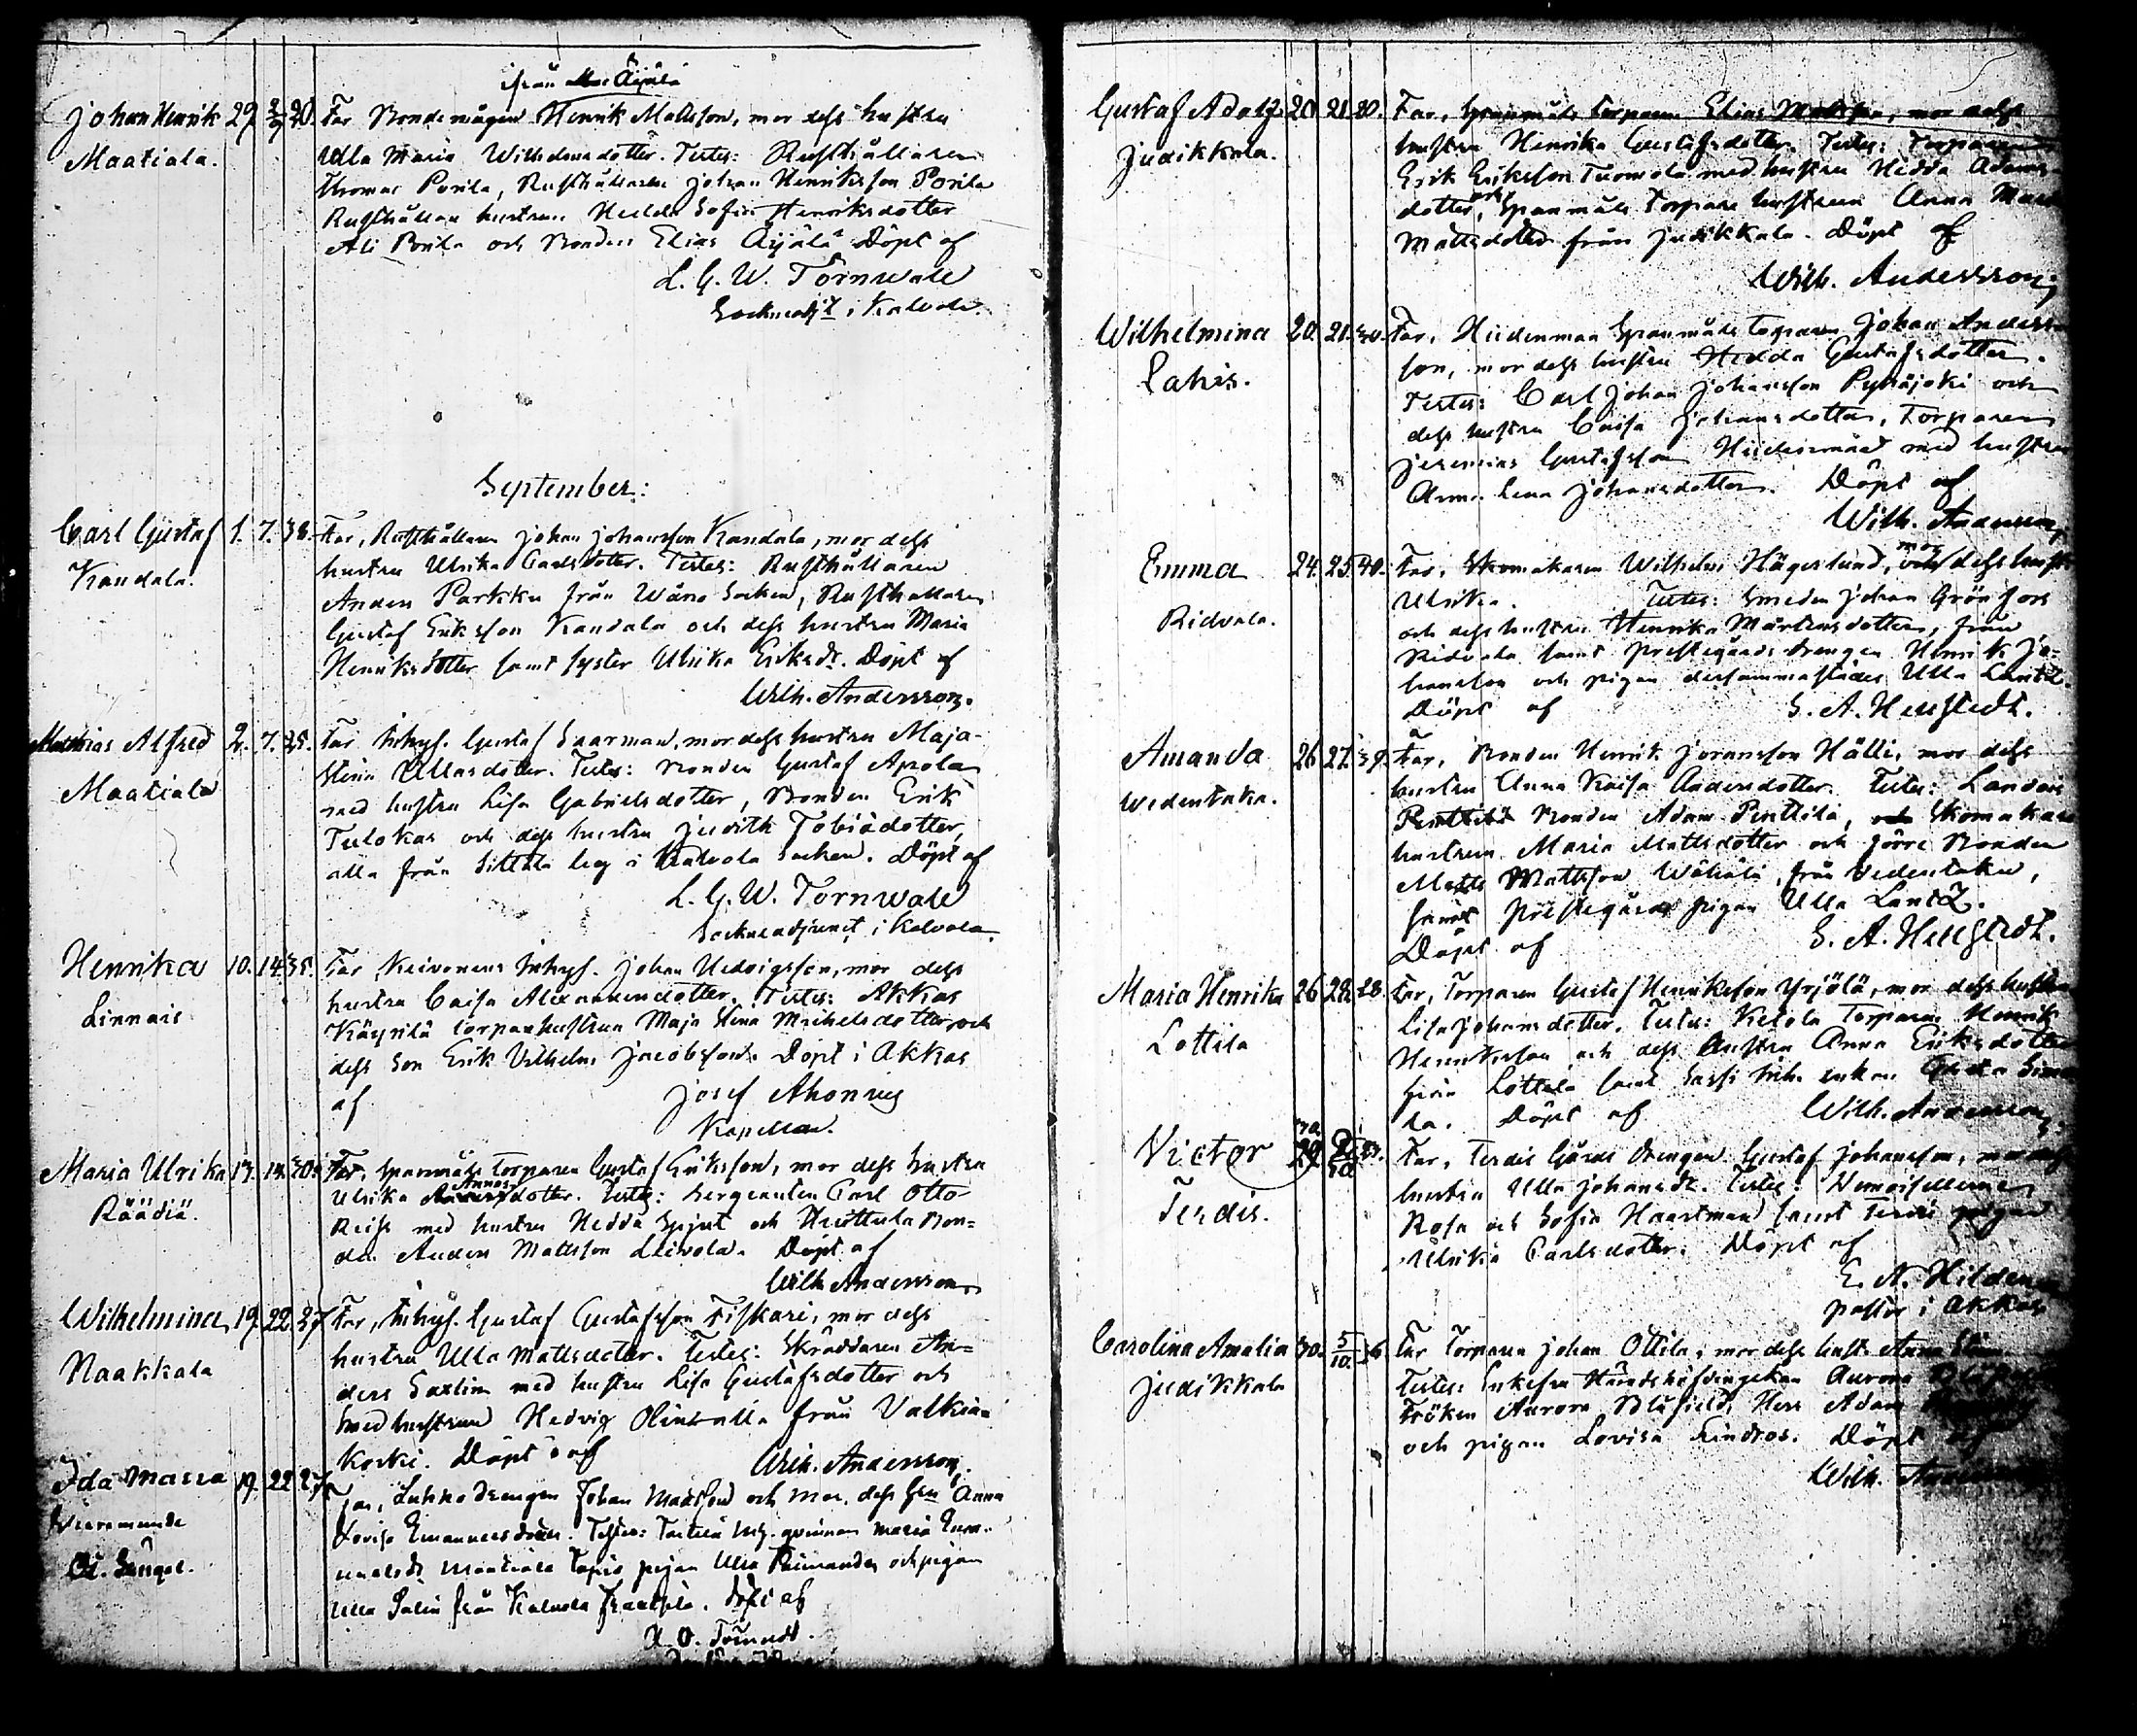 från Äijälä
Johan Henrik 29 2/9 20. Far Bondemågen Henrik Mattsson, mor dess hustru
Maatiala. Ulla Maria Wilhelmsdotter. Testes: Rusthållaren
Thomas Porila, Rusthållaren Johan Henriksson Porila
Rusthållare hustrun Hedda Sofia Henriksdotter
Ali Porila och Bonden Elias Äijälä Döpt af
L. G. W. Törnwall
Sockneadjt i Kalvola.
September:
Carl Gustaf 1. 7. 38. Far, Rusthållaren Johan Johansson Kandala, mor dess
Kandala. hustru Ulrika Carlsdotter. Testes: Rusthållaren
Anders Parkku från Wåno Socken, Rusthållaren
Gustaf Eriksson Kandala och dess hustru Maria
Henriksdotter samt syster Ulrika Eriksdr. Döpt af
Wilh. Andersson.
Mathias Alfred 2. 7. 25. Far Inhys. Gustaf Saarman, mor dess hustru Maja-
Maatiala Stina Ullasdotter. Testes: Bonden Gustaf Apola
med hustru Lisa Gabrielsdotter, Bonden Erik
Tulokas och dess hustru Judith Tobiädotter,
alla från Sittala by i Kalvola Socken. Döpt af
L. G. W. Törnwall
Sockneadjunct i Kalvola.
Henrika 10. 14. 35. Far Inhys. Johan Hedvigsson, mor dess
Linnais hustru Caisa Alexandersdotter. Testes: Akkas
torparhustrun Maja Stina Michelsdotter och
dess Son Erik Vilhelm Jacobsson. Döpt i Akkas
af Josef Ahonius
Kapellan.
Maria Ulrika 13. 14. 30. Far, Spanmåls torparen Gustaf Eriksson, mor dess hustru
Räädiä. Ulrika Annasdotter. Testes: Sergeanten Carl Otto
Reiss med hustru Hedda Spjut och Huittula Bon=
den Anders Mattsson Leivola. Döpt af
Wilh Andersson
Wilhelmina 19. 22. 27 Far, Inhys. Gustaf Gustafsson Fiskari, mor dess
Naakkala hustru Ulla Mattsdotter. Testes: Skräddaren An=
ders Saxlin med hustru Lisa Gustafsdotter och
Smedhustrun Hedvig från Valkia=
koski. Döpt af Wilh. Andersson.
Ida Maria 19. 22 27. Far, Drengen Johan Mattsson och Mor, dess hu Anna
Lovisa Emanuelsdotter. Testes: qvinnan Maria Ema-
nuelsdr Maatiala Tapio pigan Ulla och pigan
Ulla Salin från Kalvola. Döpt af
Gustaf Adolf 20 21. 30. Far, Spanmåls torparen Elias, mor dess
Judikkala. hustru Henrika Gustafsdotter. Testes: Torparen
Erik Eriksson Tuomola med hustru Hedda Adams-
dotter, och Spanmåls Torpare hustrun Anna
Mattsdotter från Judikkala. Döpt af
Wilh. Andersson
Wilhelmina 20. 21. 30. Far, Hiidenmaa Spanmåls Torparen Johan Anders-
Lahis. son, mor dess hustru Hedda Gustafsdotter.
Testes: Carl Johan Johansson Pyhäjoki och
dess hustru Caisa Johansdotter, Torparen
Jeremias Gustafsson Hiidenmaa med hustru
Anna Lena Johansdotter. Döpt af
Wilh. Andersson
Emma 24. 25 40. Far, Skomakaren Wilhelm Hägerlund, mor dess hust
Ridvala. Ulrika. Testes: Smeden Johan Grönfors
och dess hustru Henrika Mårtensdotter, från
Ridvala samt prestegårds drengen Henrik Jo=
hansson och pigan dersammastädes Ulla Lantz.
Döpt af S. A. Hellstedt.
Amanda 26 27. 39. Far, Bonden Henrik Göransson Hälli, mor dess
Wedentaka. hustru Anna Kaisa Andersdotter. Testes:
Bonden Adam Penttilä, Skomakare
hustrun Maria Mattsdotter och förre Bonden
Matts Mattsson från Vedentaka,
samt prestegårds pigan Ulla Lantz.
Döpt af S. A. Hellstedt.
Maria Henrika 26 28. 28. Far, Torparen Gustaf Henriksson Yrjölä, mor dess hustru
Lottila Lisa Johansdotter. Testes: Ketola Torparen Henrik
Henriksson och dess hustru Anna Eriksdotter
från Lottila samt Inh. enkan
Döpt af Wilh. Andersson
Victor 29 Far, Terdis Gårds drengen Gustaf Johansson, mor dess
Terdis. hustru Ulla Johansdr. Testes: Mamsellerna
Rosa och Sofia Haartman samt Terdis pigan
Ulrika Carlsdotter. Döpt af
E. A. Hilden
pastor i Akkas
Carolina Amalia 30. 5/10. 36 Far Torparen Johan Ottila, mor dess hust. Anna
Judikkala Testes: Enkefru Häradshöfdingskan Aurora
Fröken Aurora Blåfield, Herr Adam
och pigan Lovisa Lindros. Döpt af
Wilh.